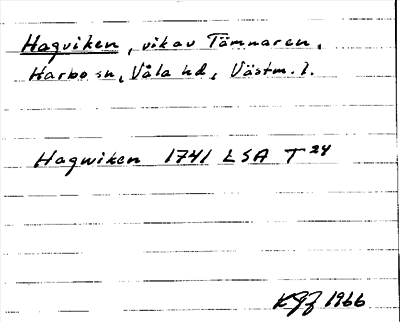 Hagviken, vik av Tämnaren,
Harbo sn, Våla hd, Västm. l.
Hagwiken 1741 LSA T 24
1966